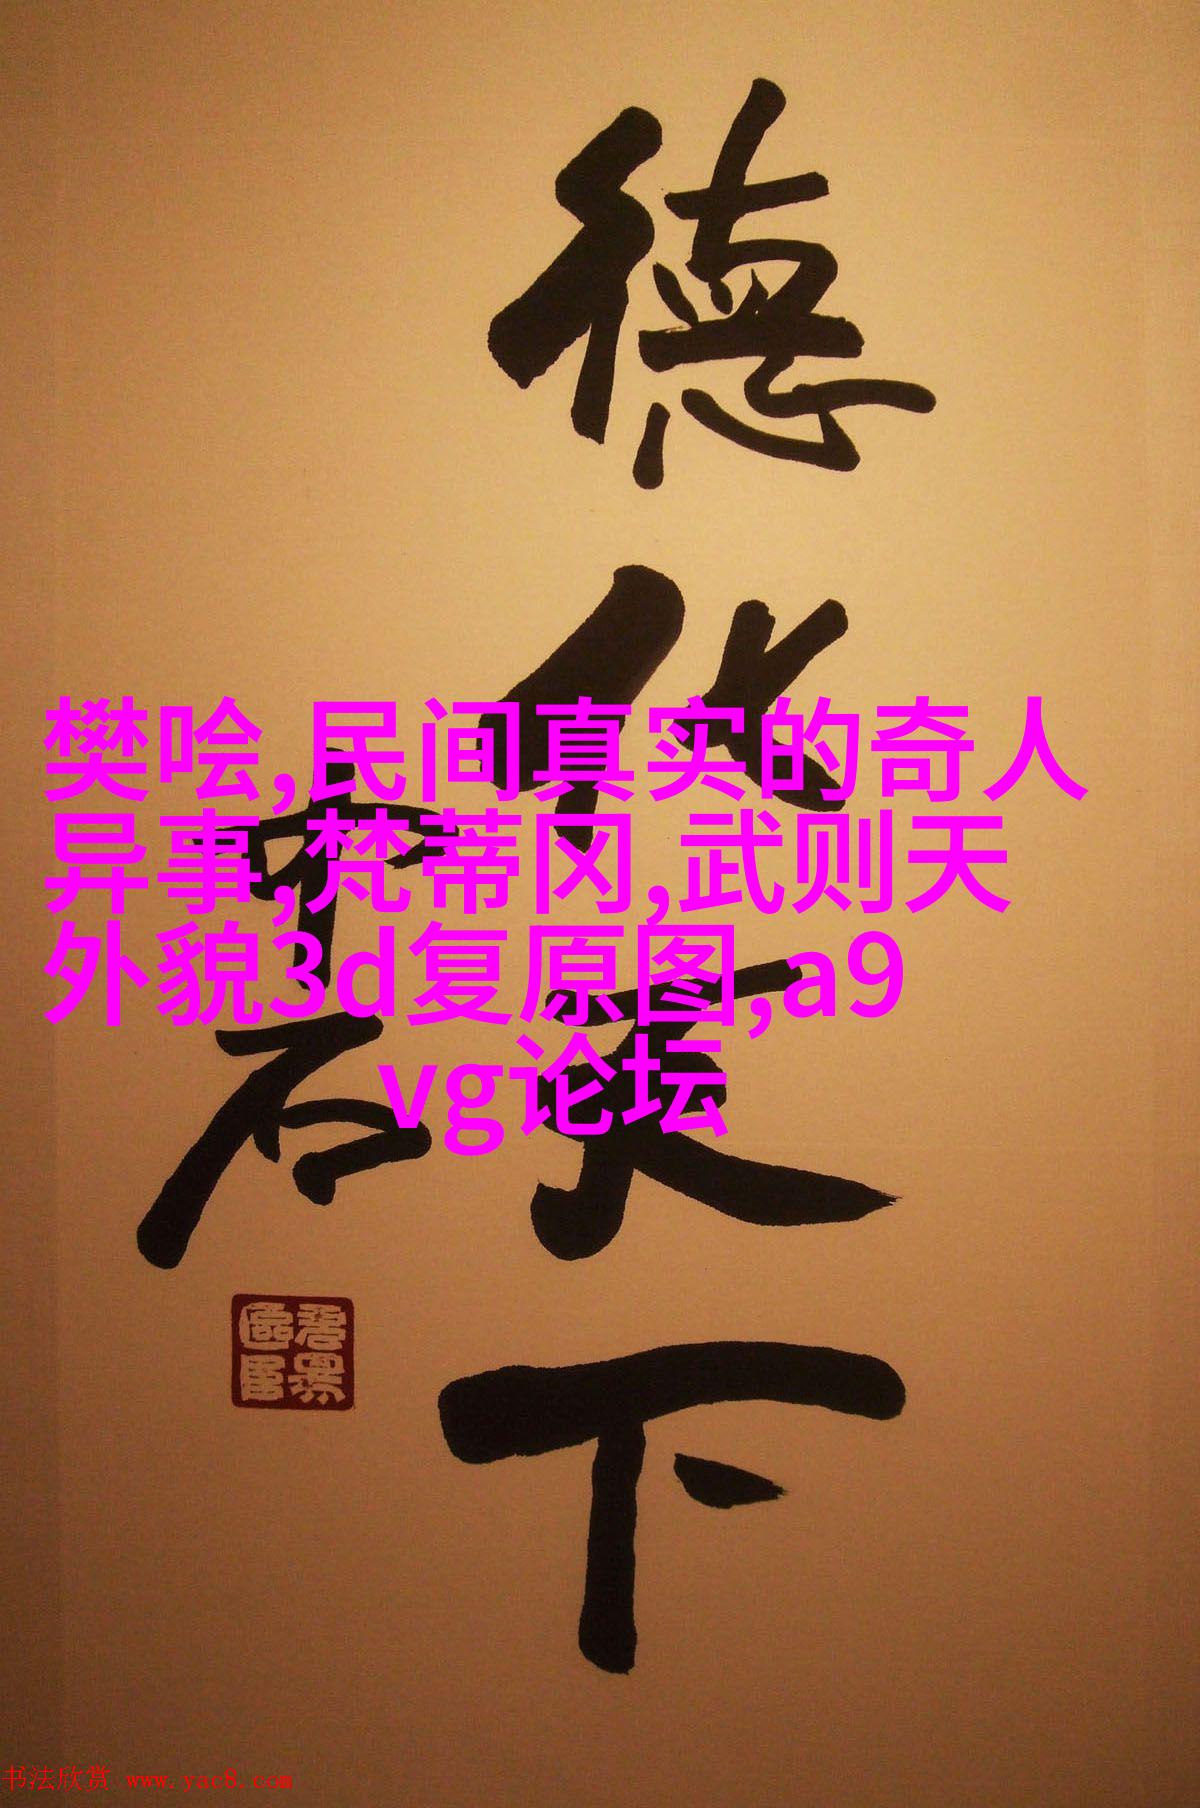 德化天下
中石
樊哙,民间真实的奇人
异事,梵蒂冈,武则天
外貌3d复原图,a9
vg论坛
书法欣赏 www.yac8.com